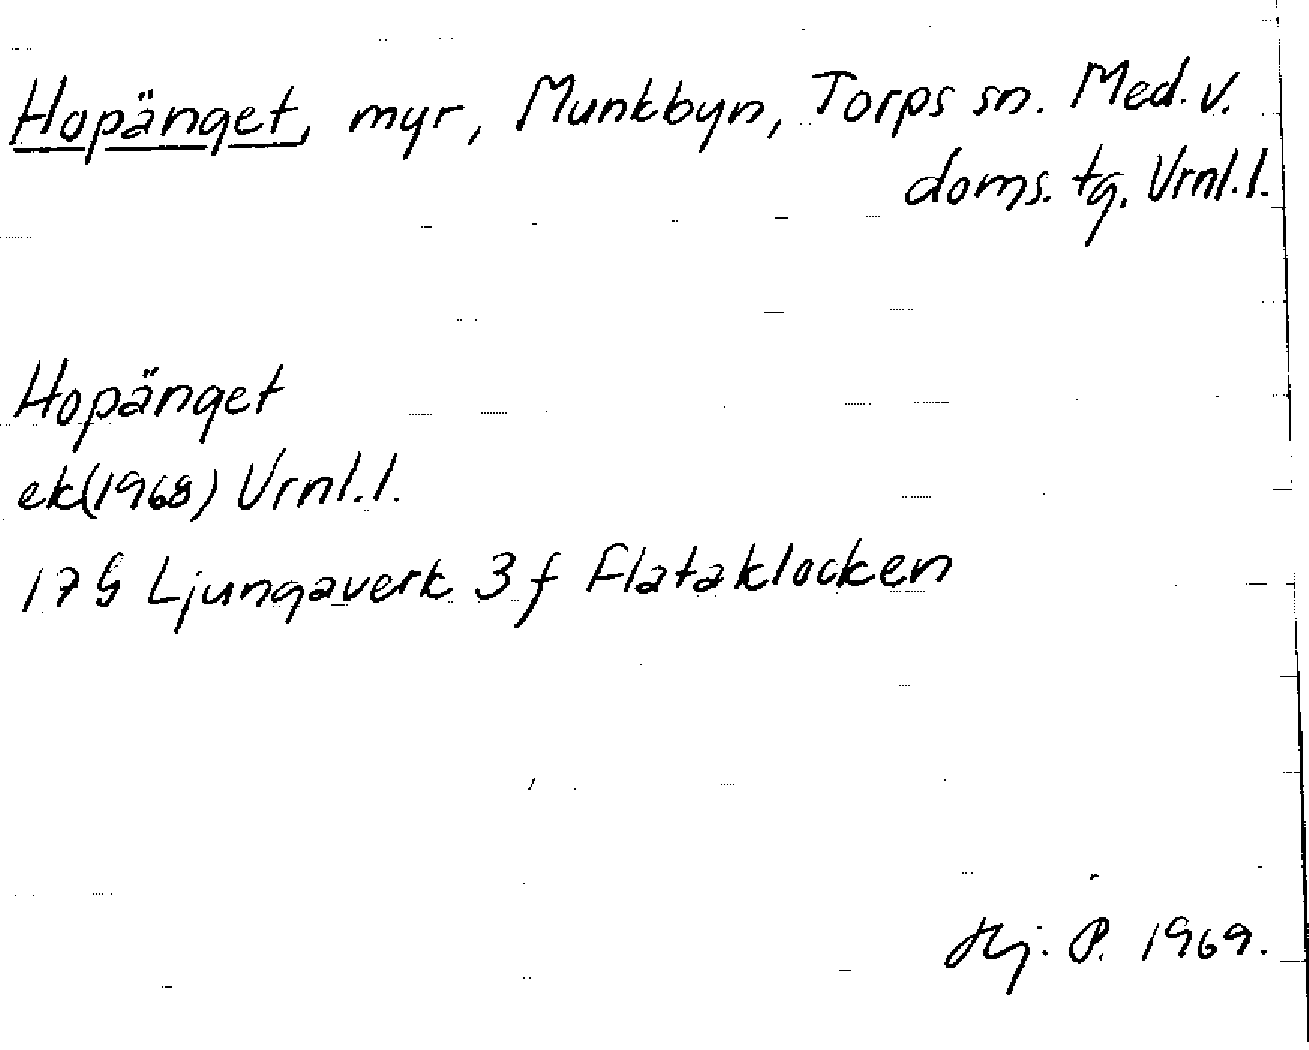 Hopänget, myr, Munkbyn, Torps sn. Med. v.
doms. tg. Vrnl. l.
Hopänget
ek(1968) Vrnl. l.
17G Ljungaverk 3 f Flataklocken
Hj. P. 1969.